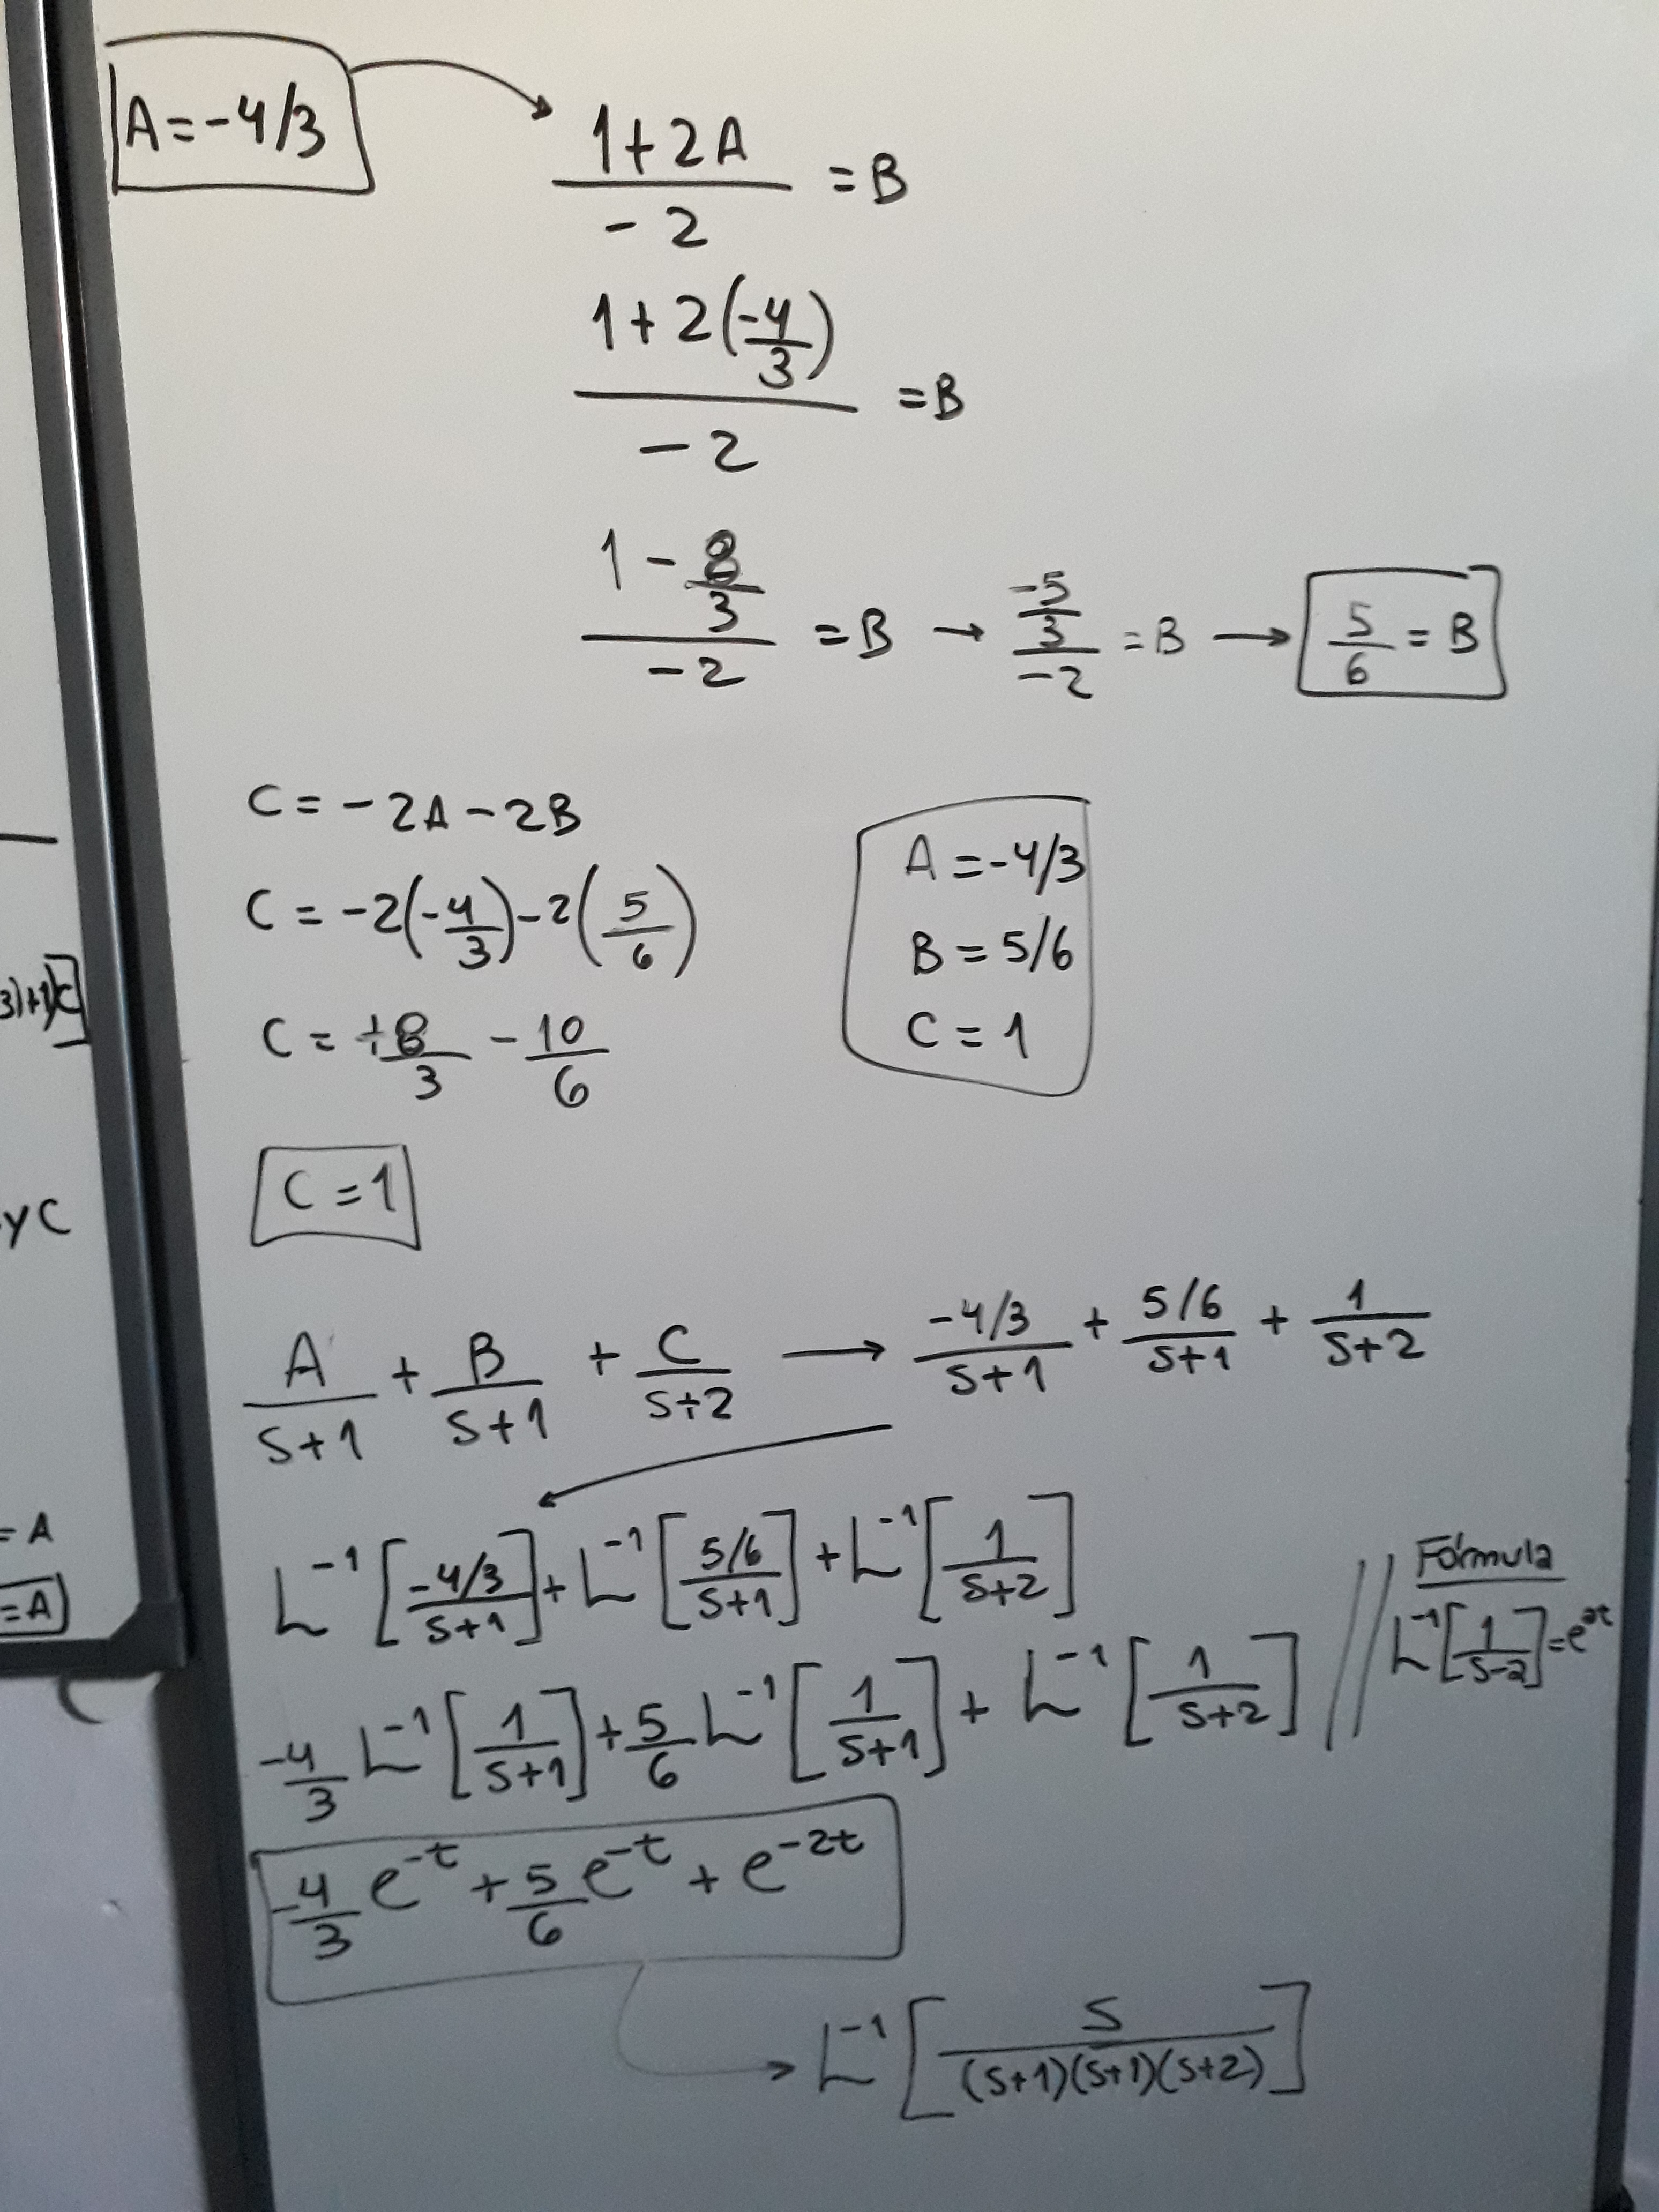 A = -4/3
(1+2A)/(-2) = B
(1+2(-4/3))/(-2) = B
(1 - 8/3)/(-2) = B → (-5/3)/(-2) = B → 5/6 = B
C = -2A - 2B
C = -2(-4/3) - 2(5/6)
C = +8/3 - 10/6
C = 1
A = -4/3
B = 5/6
C = 1
3)+1)C
y C
= A
= A
A/(S+1) + B/(S+1) + C/(S+2) → (-4/3)/(S+1) + (5/6)/(S+1) + 1/(S+2)
L⁻¹[(-4/3)/(S+1)] + L⁻¹[(5/6)/(S+1)] + L⁻¹[1/(S+2)]
-4/3 L⁻¹[1/(S+1)] + 5/6 L⁻¹[1/(S+1)] + L⁻¹[1/(S+2)]
Fórmula
L⁻¹[1/(S-a)] = e^(at)
-4/3 e^(-t) + 5/6 e^(-t) + e^(-2t)
L⁻¹[S/((S+1)(S+1)(S+2))]